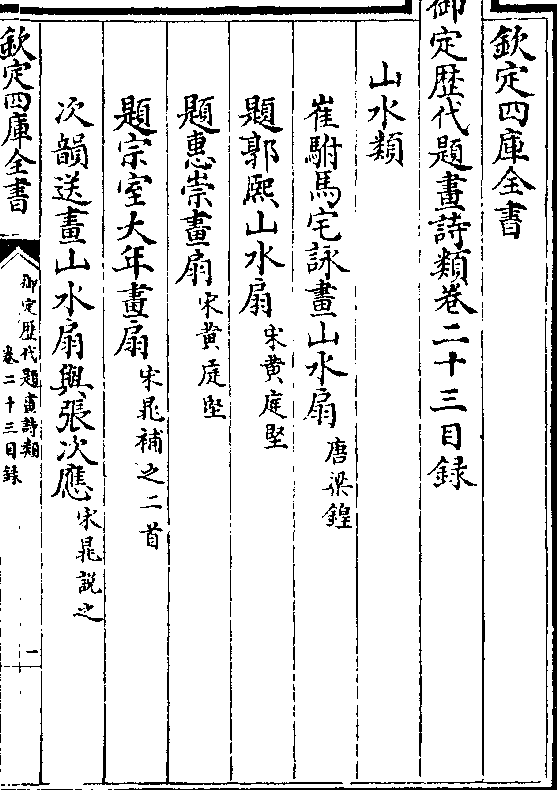 欽定四庫全書
御定歴代題畫詩類卷二十三目録
山水類
崔駙馬宅詠畫山水扇 唐梁鍠
題郭熙山水扇 宋黄庭堅
題惠崇畫扇 宋黄庭堅
題宗室大年畫扇 宋晁補之二首
次韻送畫山水扇與張次應 宋晁説之
欽定四庫全書
御定歴代題畫詩類
卷二十三目録
一